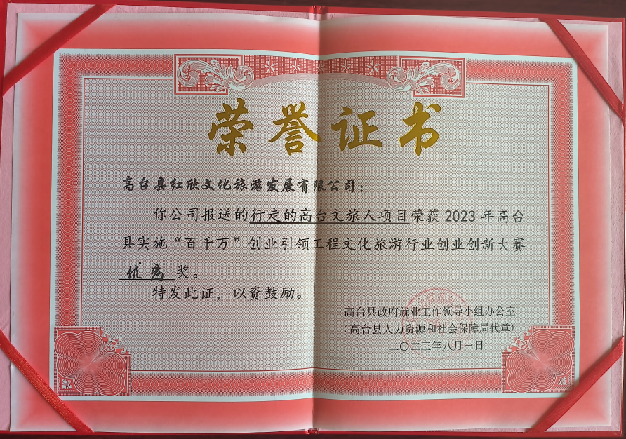 荣誉证书
高台县红欣文化旅游发展有限公司：
你公司报送的行走的高台文旅人项目荣获2023年高台
县实施“百千万”创业引领工程文化旅游行业创业创新大赛
优秀奖。
特发此证，以资鼓励。
高台县政府就业工作领导小组办公室
（高台县人力资源和社会保障局代章）
二〇二三年八月一日